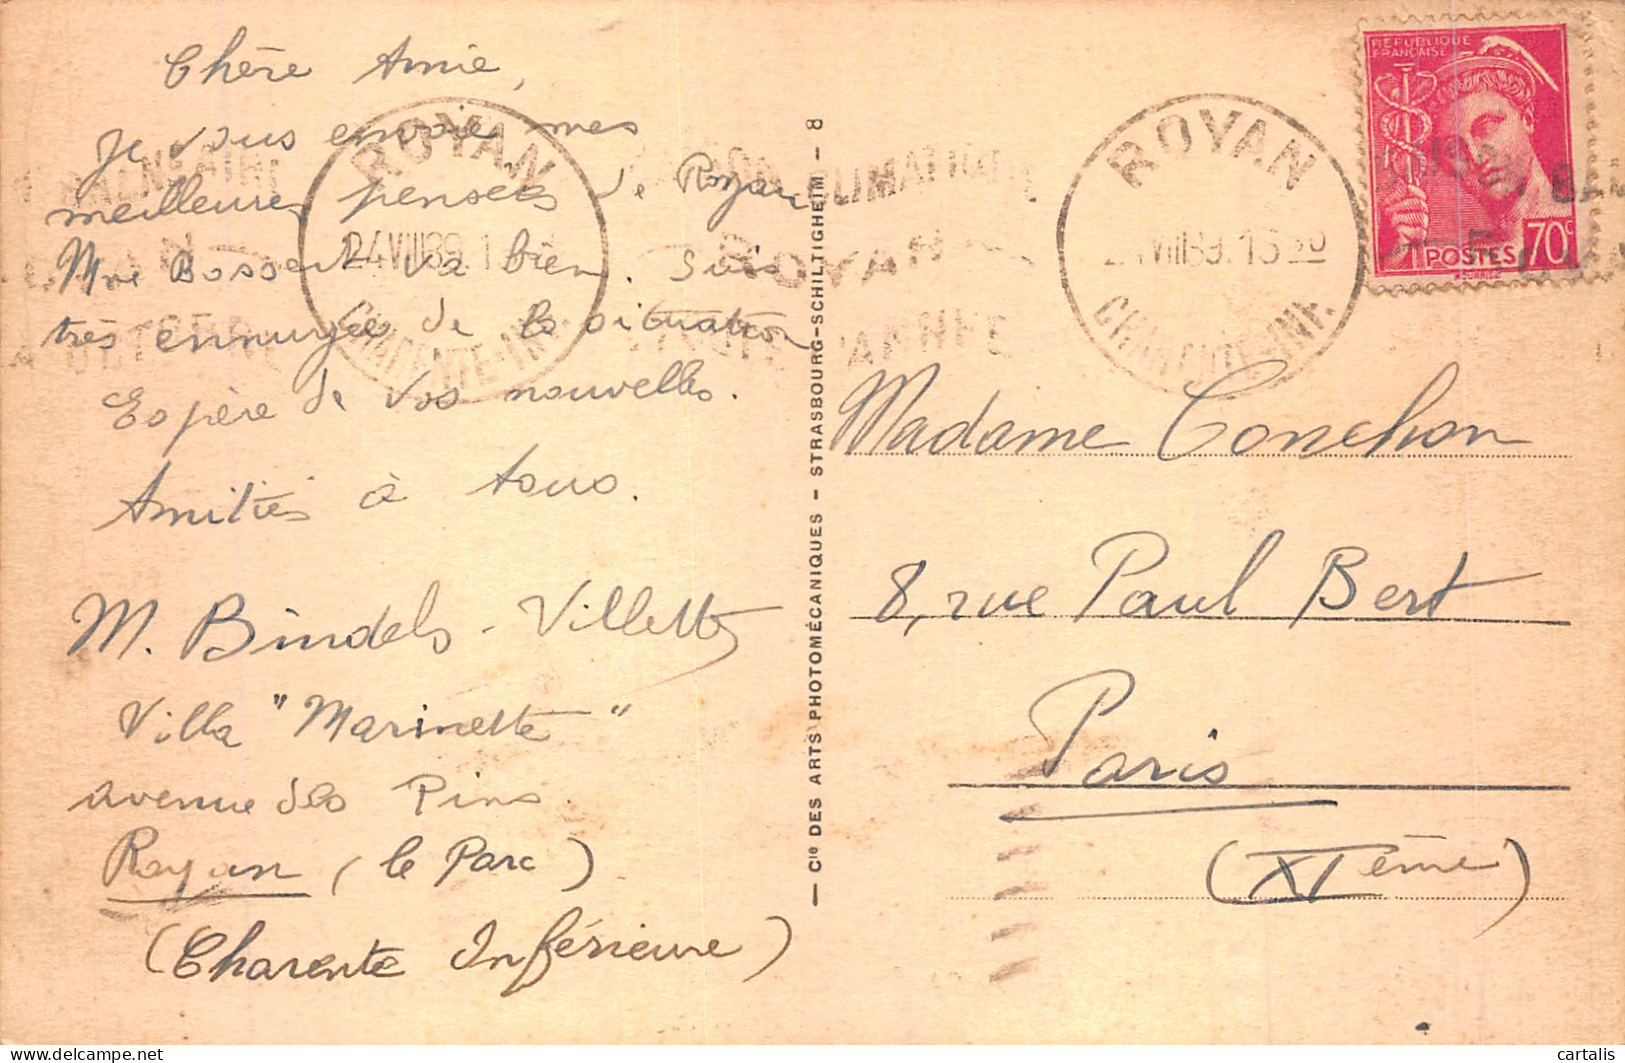 Chère Amie,
Je vous envoie mes
meilleures pensées de Royan
Mme Bossert va bien. Suis
très ennuyée de la situation
Espère de vos nouvelles.
Amitiés à tous.
M. Bindels-Villette
Villa "Marinette"
avenue des Pins.
Royan (le Parc)
(Charente Inférieure)
ROYAN
24 VIII 39
CHARENTE-INF.
ROYAN
— Cie DES ARTS PHOTOMÉCANIQUES - STRASBOURG-SCHILTIGHEIM - 8
ROYAN
VIII 39. 16 30
CHARENTE-INF.
REPUBLIQUE
FRANÇAISE
POSTES 70c
Madame Conchon
8, rue Paul Bert
Paris
(XIème)
cartalis